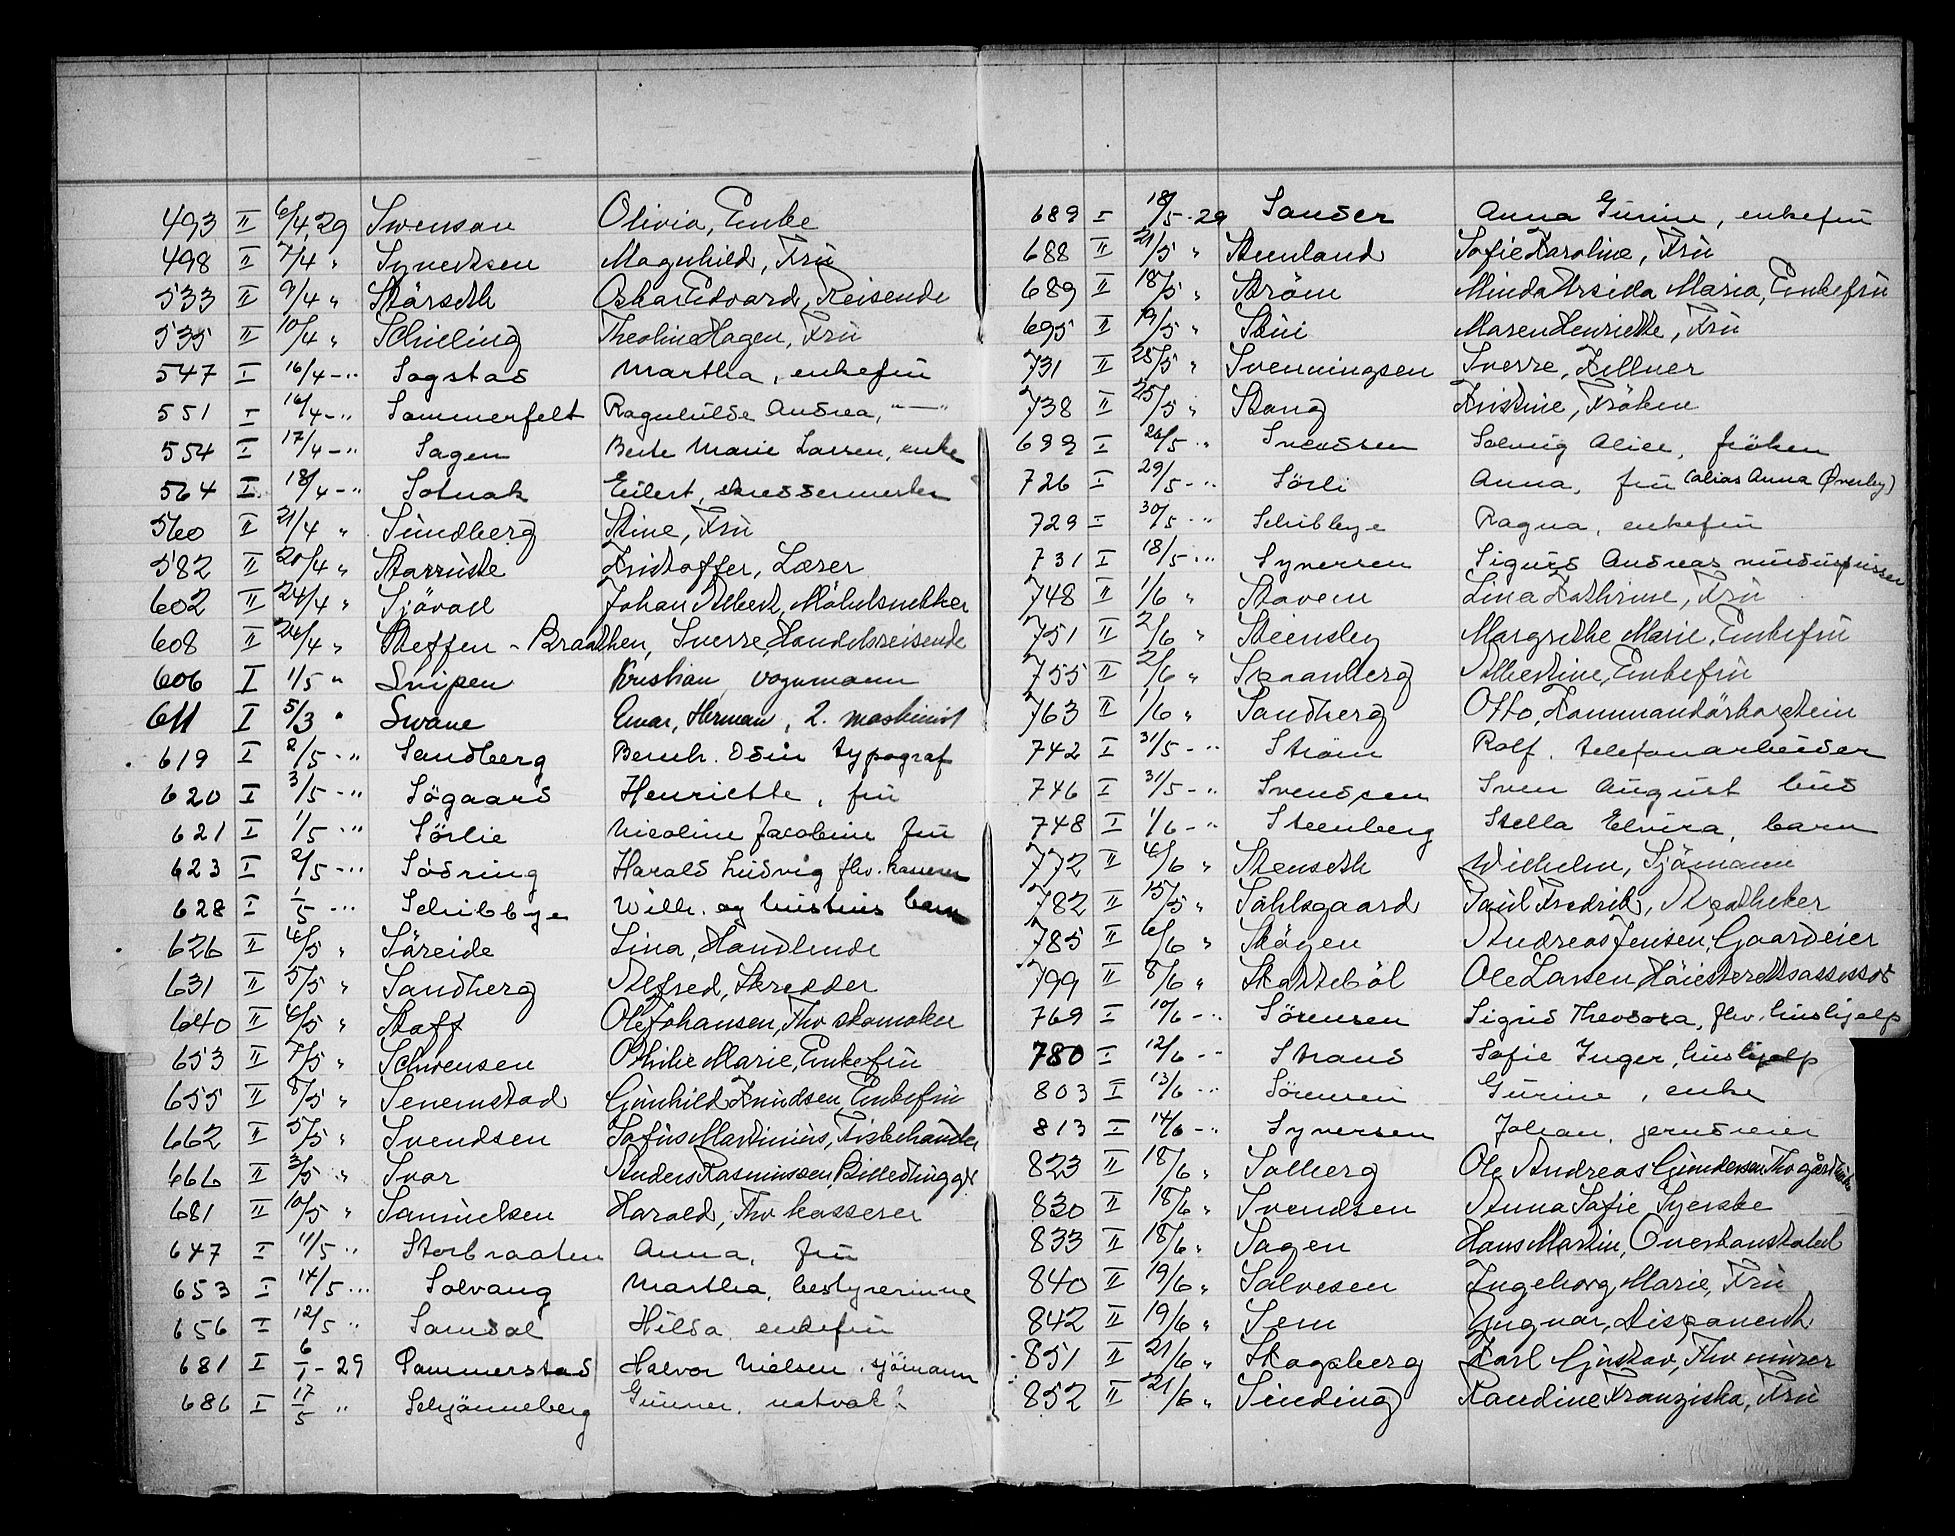 493 II 6/4 29 Swenson Olivia, Enke
498 II 7/4 " Syvertsen Magnhild, Frü
533 II 9/4 " Skårseth Oskar Edvard, Reisende
535 II 10/4 " Schieling Theoline Hagen, Frü
547 I 16/4 - " Sogstad Martha, enkefru
551 I 16/4 - " Sommerfelt Ragnhilde Andrea, - " -
554 I 17/4 - " Sagen Berte Marie Larsen, enke
564 I 18/4 - " Eilert, skreddermester
560 II 21/4 " Sündberg Stine, Frü
582 II 20/4 " Kristoffer, Lærer
602 II 24/4 " Sjövall Johan Albert, Möbelsnekker
608 II 26/4 " Steffen - Braathen, Sverre, Handelsreisende
606 I 1/5 " Snipen Kristian, vognmann
611 I 5/3 " Swane Einar, Herman, 2. maskinist
619 I 2/5 - " Sandberg Bernh. Odin typograf
620 I 3/5 - " Søgaard Henriette, fru
621 I 1/5 - " Sörlie Nicoline Jacobine fru
623 I 2/5 - " Södring Harald Ludvig fhv. kasserer
628 I 1/5 - " Schibbye Wilh. og hustrus barn
626 II 4/5 " Säreide Lina, Handlende
631 II 5/5 " Sandberg Alfred, Skredder
640 II 6/5 " Staff Ole Johansen, Fhv skomaker
653 II 7/5 " Schwensen Othilie Marie, Enkefrü
655 II 8/5 " Senemstad Günhild Knüdsen, Enkefrü
662 II 5/5 " Svendsen Sofüs Martiniüs, Fiskehandler
666 II 3/5 " Svor Anders Rasmussen, Billedhugger
681 II 10/5 " Samüelsen Harald, Fhv kasserer
647 I 11/5 " Storbraaten Anna, fru
653 I 14/5 - " Solvang Martha, bestyrerinne
656 I 12/5 " Samdal Hilda, enkefru
681 I 6/1 - 29 Sommerstad Halvor Nielsen, sjömann
686 I 17/5 " Schjönneberg Gunner,
689 I 18/5 - 29 Sander Anna Gurine, enkefru
688 II 21/5 " Steenland Sofie Karoline, Frü
689 II 18/5 " Ström Minda Arsida Maria, Enkefrü
695 II 19/5 " Maren Henriette, Frü
731 II 28/5 " Svenningsen Sverre, Kellner
738 II 25/5 " Stang Kristine, Fröken
699 I 26/5 " Svendsen Solveig Alice, fröken
726 I 29/5 - " Sörli Anna, fru (alias Anna Øverby)
729 I 30/5 - " Schibbye Ragna, enkefru
731 I 18/5 - " Syversen Sigurd Andreas
748 II 1/6 " Stavern Lina Kathrine, Frü
751 II 2/6 " Steensby Margrethe Marie, Enkefrü
755 II 2/6 " Spaanberg Albertine, Enkefrü
763 II 1/6 " Sandberg Otto, Kommandörkaptein
742 I 31/5 - " Ström Rolf, telefonarbeider
746 I 31/5 - " Svendsen Sven August bud
748 I 1/6 - " Steenberg Stella Elvira, barn
772 II 4/6 " Stenseth Wilhelm, Sjömann
782 II 15/5 " Sahlsgaard Paül Fredrik, Apotheker
785 II 6/6 " Skögen Andreas Jensen, Gaardeier
799 II 8/6 " Skatteböl Ole Larsen, Höiesterettsassessor
769 I 10/6 - " Sörensen Sigrid Theodora, fhv. hushjelp
780 I 12/6 - " Strand Sofie Inger, hushjelp
803 I 13/6 - " Sörensen Gurine, enke
813 I 14/6 - " Syversen Johan, jerndreier
823 II 18/6 " Solberg Ole Andreas Gündersen, Fhv
830 II 18/6 " Svendsen Anna Sofie, Syerske
833 II 18/6 " Sagen Hans Martin, Overkonstabel
840 II 19/6 " Salvesen Ingeborg Marie, Frü
842 II 19/6 " Sem Yngvar, Disponent
851 II 21/6 " Skogsberg Karl Güstav, Fhv mürer
852 II 21/6 " Sinding Randine Franziska, Frü